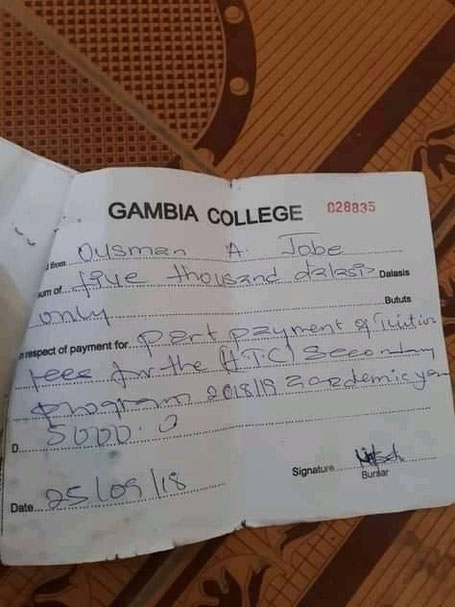 GAMBIA COLLEGE 028835
from Ousman A. Jobe
sum of five thousand dalasis Dalasis
only Bututs
in respect of payment for part payment of Tuition
fees for the (HTC) Secondary
program 2018/19 academic year
D 5000.0
Date 25/09/18 Signature
Bursar